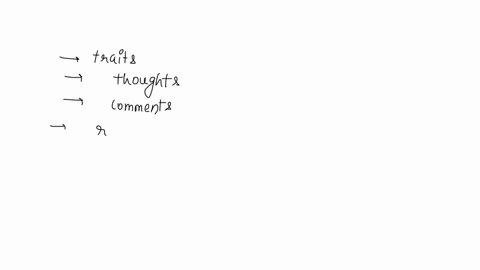 → traits
→ thoughts
→ comments
→ r